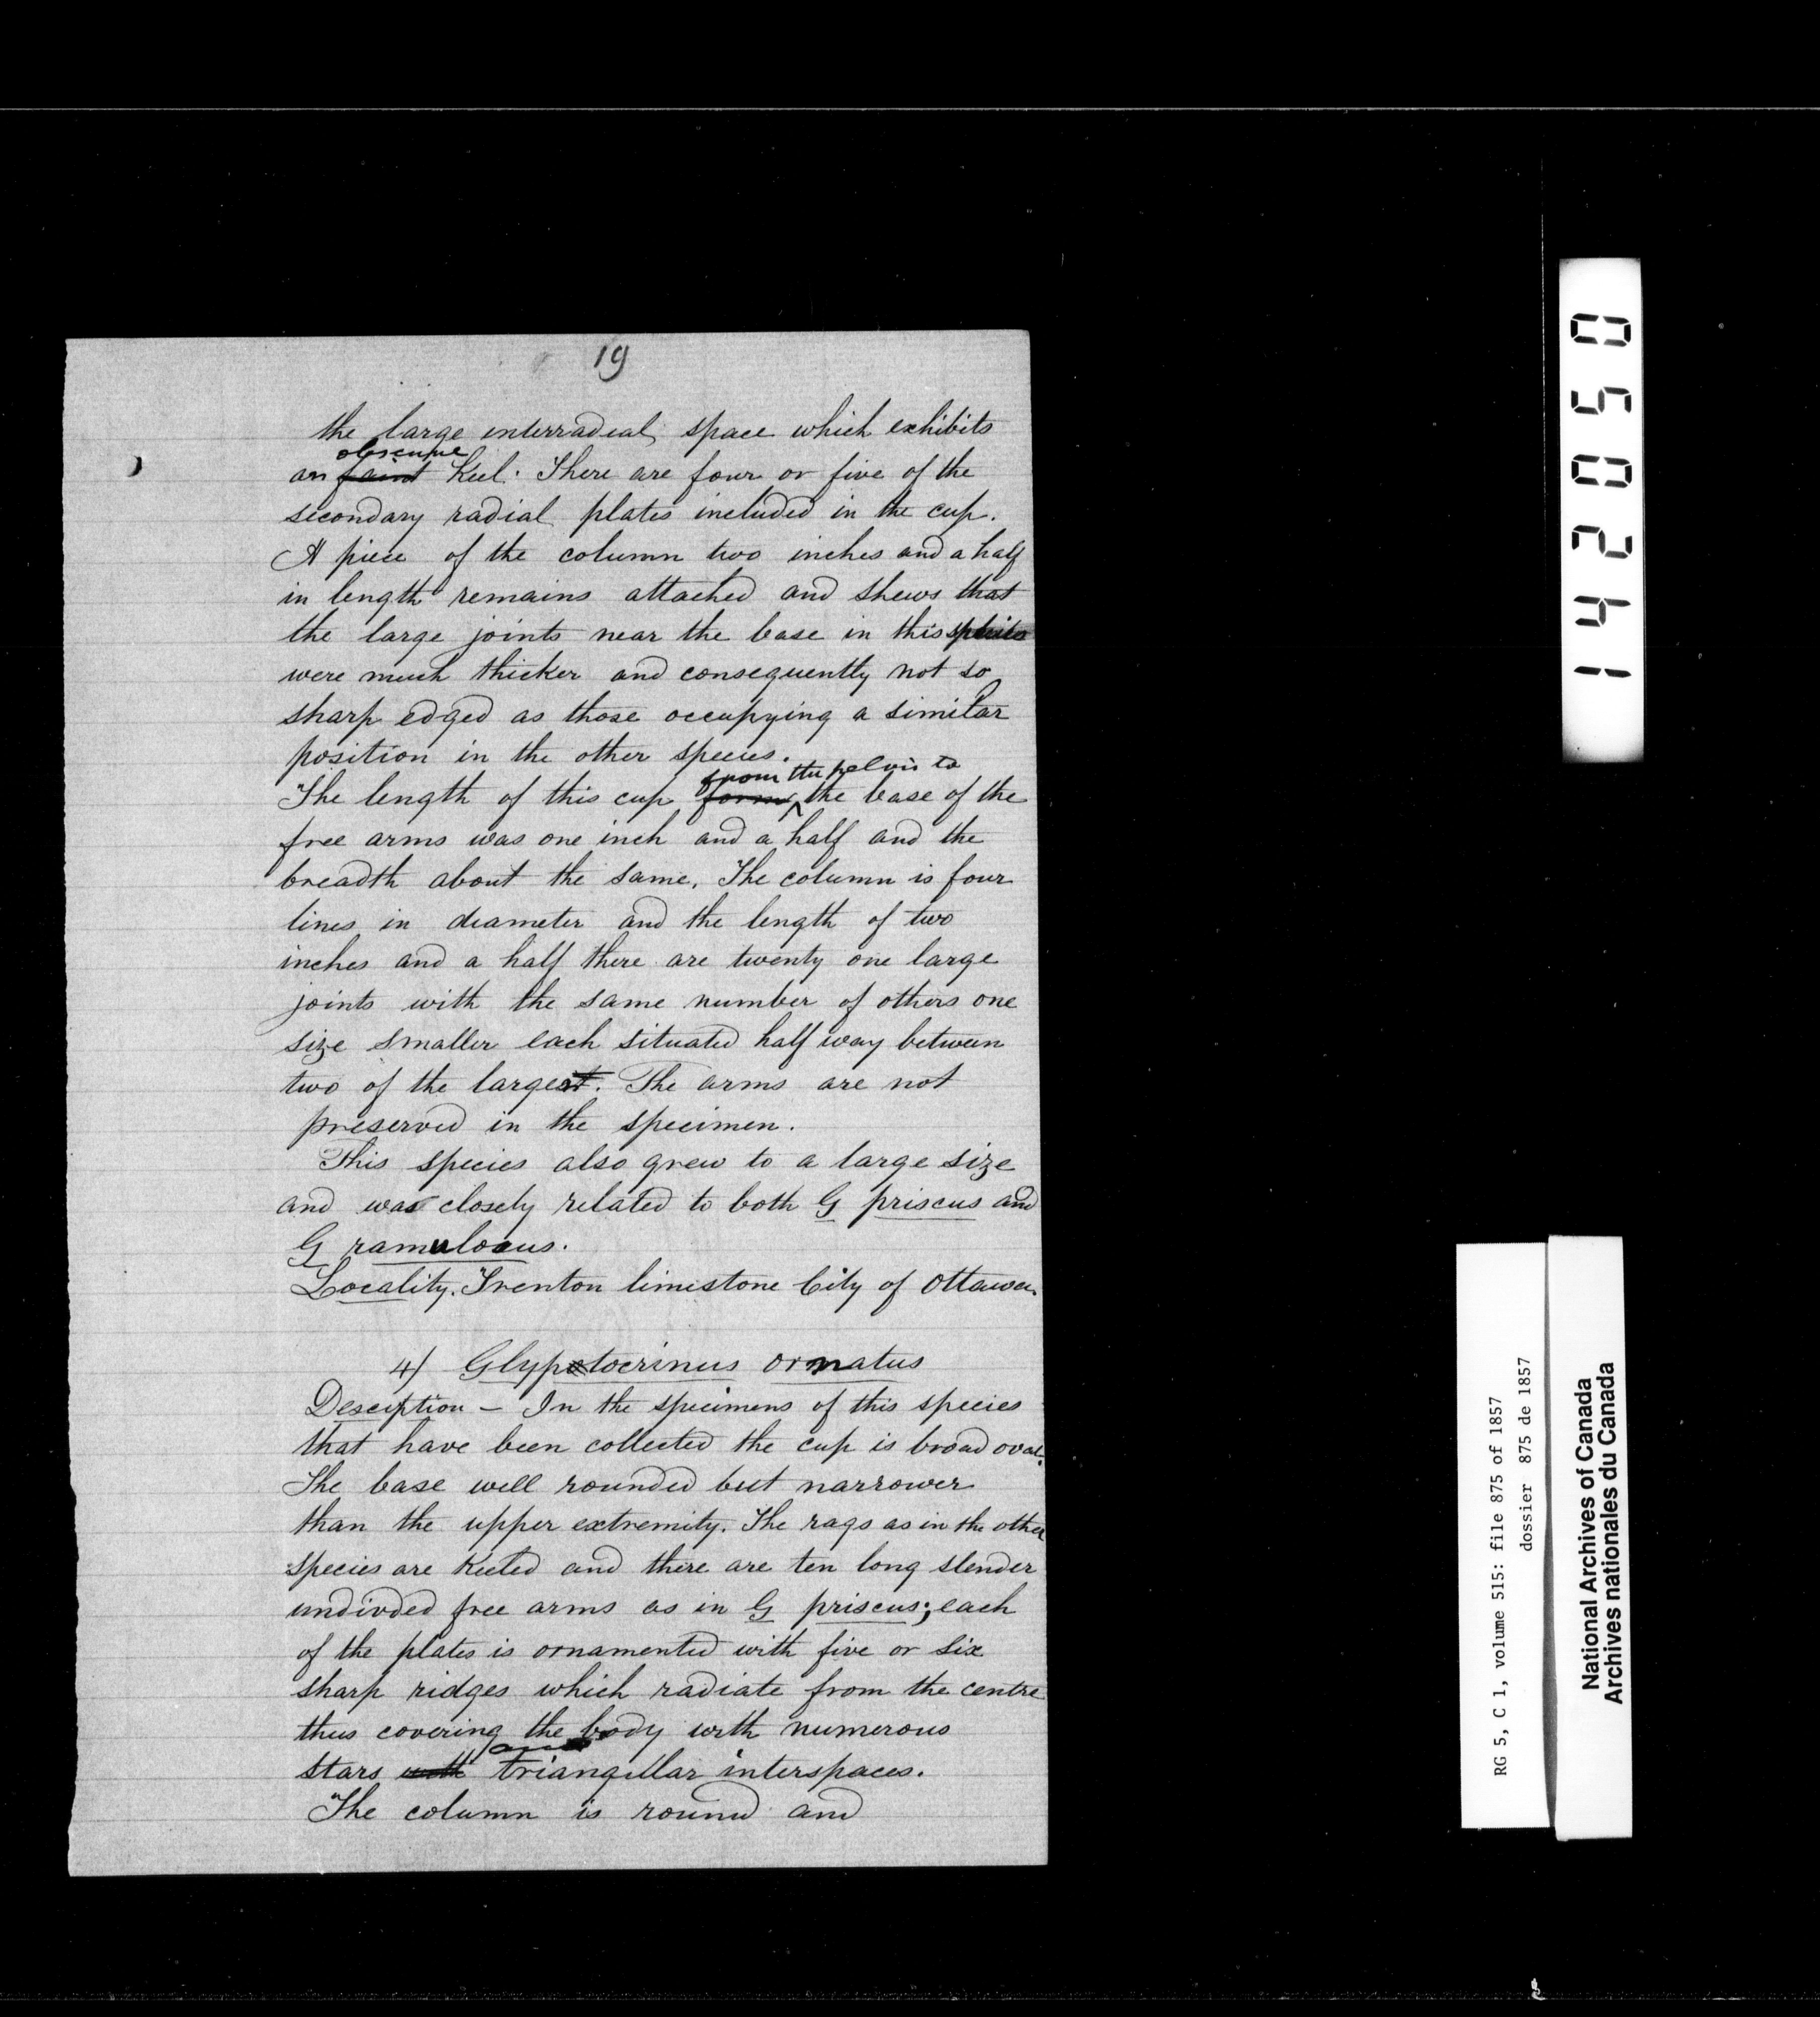 19
the large interradial space which exhibits
obscure
an faint Keel. There are four or five of the
secondary radial plates included in the cup.
A piece of the column two inches and a half
in length remains attached and shews that
the large joints near the base in this
were much thicker and consequently not so
sharp edged as those occupying a similar
position in the other species.
from the pelvis to
The length of this cup form the base of the
free arms was one inch and a half and the
breadth about the same. The column is four
lines in diameter and the length of two
inches and a half there are twenty one large
joints with the same number of others one
size smaller each situated half way between
two of the largest. The arms are not
preserved in the specimen.
This species also grew to a large size
and was closely related to both G priscus and
G ramulosus.
Locality. Trenton limestone City of Ottawa.
4) Glyptocrinus ornatus
Desciption — In the specimens of this species
that have been collected the cup is broad oval.
The base well rounded but narrower
than the upper extremity. The rays as in the other
species are Keeled and there are ten long slender
undivded free arms as in G priscus; each
of the plates is ornamented with five or six
sharp ridges which radiate from the centre
thus covering the body with numerous
stars with triangular interspaces.
The column is round and
142050
RG 5, C 1, volume 515: file 875 of 1857
dossier 875 de 1857
National Archives of Canada
Archives nationales du Canada